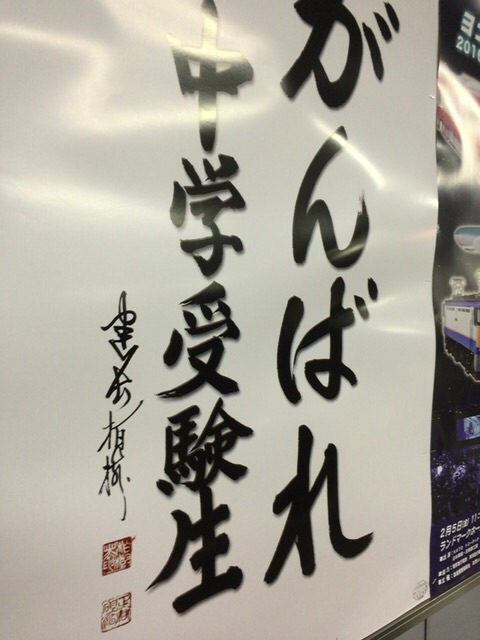 がんばれ
中学受験生
ヨコ
2016
2月5日(金)11:
ランドマークホー